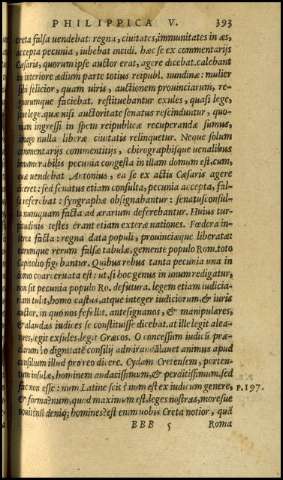 PHILIPPICA V. 393
creta falsa uendebat: regna, ciuitates, immunitates in æs,
accepta pecunia, iubebat incidi. hæc se ex commentarijs
Cæsaris, quorum ipse auctor erat, agere dicebat. calebant
in interiore ædium parte totius reipubl. nundinæ: mulier
sibi felicior, quàm uiris, auctionem prouinciarum, re-
gnorumque faciebat. restituebantur exules, quasi lege,
sine lege. quæ nisi auctoritate senatus rescinduntur, quo-
niam ingressi in spem reipublicæ recuperandæ sumus,
imago nulla liberæ ciuitatis relinquetur. Neque solum
commentarijs commentitijs, chirographisque uenalibus
innumerabilis pecunia congesta in illam domum est. cum,
quæ uendebat Antonius, ea se ex actis Cæsaris agere
diceret: sed senatus etiam consulta, pecunia accepta, fal-
sa referebat: syngraphæ obsignabantur: senatusconsul-
ta nunquam facta ad ærarium deferebantur. Huius tur-
pitudinis testes erant etiam exteræ nationes. Fœdera in-
terea facta: regna data: populi, prouinciæque liberatæ:
earumque rerum falsæ tabulæ, gemente populo Rom. toto
Capitolio figebantur. Quibus rebus tanta pecunia una in
domo coaceruata est: ut, si hoc genus in unum redigatur,
non sit pecunia populo Ro. defutura. legem etiam iudicia-
riam tulit, homo castus, atque integer iudiciorum, & iuris
auctor. in quo nos fefellit. antesignanos, & manipulares,
& alaudas iudices se constituisse dicebat. at ille legit alea-
tores, legit exsules, legit Græcos. O concessum iudicū præ-
clarum! ò dignitatē consilij admirandā! auet animus apud
consilium illud pro reo dicere. Cydam Cretensem, porten-
tum insulæ, hominem audacissimum, & perditissimum. sed
fac non esse: num Latine scit? num est ex iudicum genere,
& forma? num, quod maximum est, leges nostras, moresue
nouit? num deniq; homines? est enim uobis Creta notior, quā
P. 197.
BBB 5 Roma